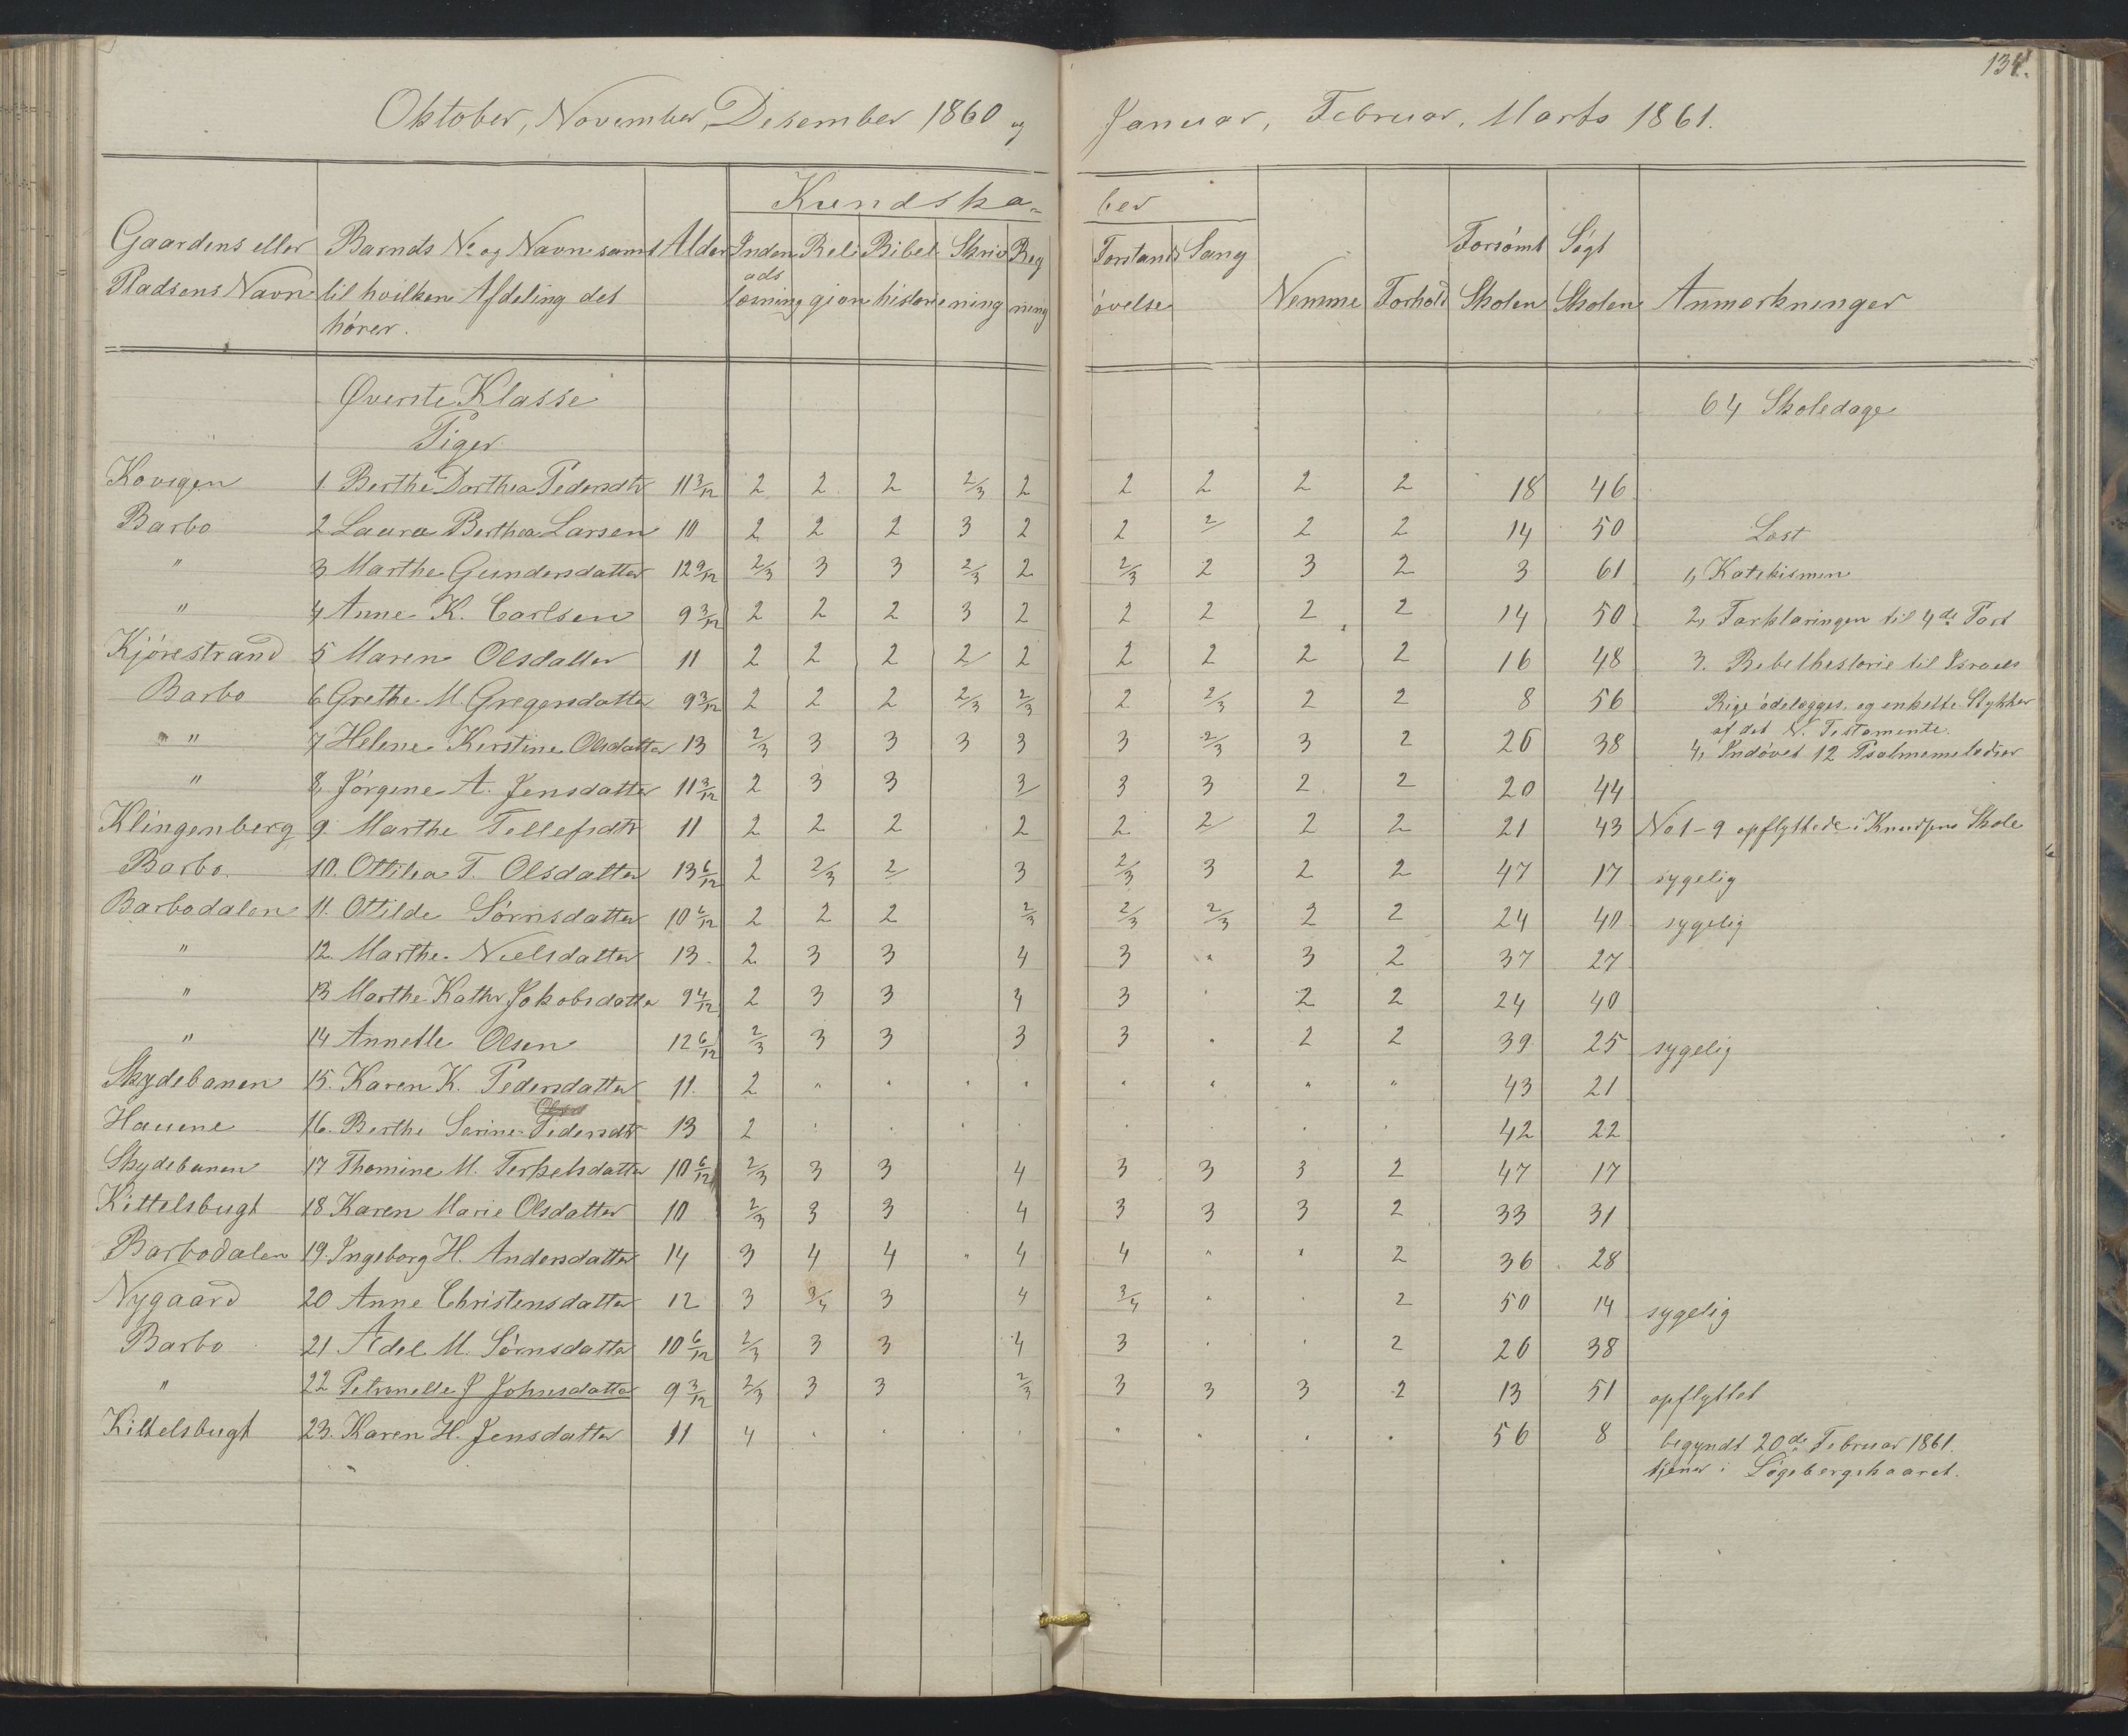 134.
Oktober, November, Desember 1860 og Januar, Februar, Marts 1861.
Kundska= ber
Gaardens eller Barnets No og Navn samt Alder Inden Reli Bibel Skriv Reg Forstands Sang Forsömt Sögt
ads
Pladsens Navn til hvilken Afdeling det læsning gion historie ning ning övelse Nemme Forhold Skolen Skolen Anmerkninger
hörer.
Øverste Klasse 64 Skoledage
Piger
Kovigen 1. Berthe Dorthea Pedersdtr 11 3/12 2 2 2 2/3 2 2 2 2 2 18 46
Barbo 2 Laura Berthea Larsen 10 2 2 2 3 2 2 2 2 2 14 50 Læst
" 3 Marthe Gundersdatter 12 9/12 2/3 3 3 2/3 2 2/3 2 3 2 3 61 1, Katekismen
" 4 Anne K. Carlsen 9 3/12 2 2 2 3 2 2 2 2 2 14 50 2, Forklaringen til 4de Part
Kjörestrand 5 Maren Olsdatter 11 2 2 2 2 2 2 2 2 2 16 48 3. Bibelhistorie til Israels
Barbo 6 Grethe M. Gregersdatter 9 3/12 2 2 2 2/3 2/3 2 2/3 2 2 8 56 Rige ödelægges, og enkelte Stykker
af det N. Testamente.
" 7 Helene Kirstine Olsdatter 13 2/3 3 3 3 3 3 2/3 3 2 26 38 4, Indövet 12 Psalmemelodier
" 8, Jörgine A. Jensdatter 11 3/12 2 3 3 3 3 3 2 2 20 44
Klingenberg 9. Marthe Tellefsdtr 11 2 2 2 2 2 2 2 2 21 43 No 1-9 opflyttede i Knudsens Skole
Barbo. 10. Ottilia T. Olsdatter 13 6/12 2 2/3 2 3 2/3 3 2 2 47 17 sygelig
Barbodalen 11. Ottilde Sörnsdatter 10 6/12 2 2 2 2/3 2/3 2/3 2 2 24 40 sygelig
" 12. Marthe Nielsdatter 13. 2 3 3 4 3 " 3 2 37 27
" 13 Marthe Kathr Jakobsdatter 9 4/12 2 3 3 4 3 " 2 2 24 40
" 14 Annette Olsen 12 6/12 2/3 3 3 3 3 " 2 2 39 25 sygelig
Skydebanen 15. Karen K. Pedersdatter 11. 2 " " " " " " " " 43 21
Olsd
Hauene 16. Berthe Serine Pedersdtr 13 2 " " " " " " " " 42 22
Skydebanen 17 Thomine M. Terkelsdatter 10 6/12 2/3 3 3 4 3 3 3 2 47 17
Kittelsbugt 18 Karen Marie Olsdatter 10 2/3 3 3 4 3 3 3 2 33 31
Barbodalen 19. Ingeborg H. Andersdatter 14 3 4 4 " 4 4 " " 2 36 28
Nygaard 20 Anne Christensdatter 12 3 3/4 3 4 3/4 " " 2 50 14 sygelig
Barbo 21 Adel M. Sörnsdatter 10 6/12 2/3 3 3 4 3 " " 2 26 38
" 22 Petronelle J Johnsdatter 9 3/12 2/3 3 3 2/3 3 3 3 2 13 51 opflyttet
Kittelsbugt 23. Karen H. Jensdatter 11 4 " " " " " " " " 56 8 begyndt 20de Februar 1861.
tjener i